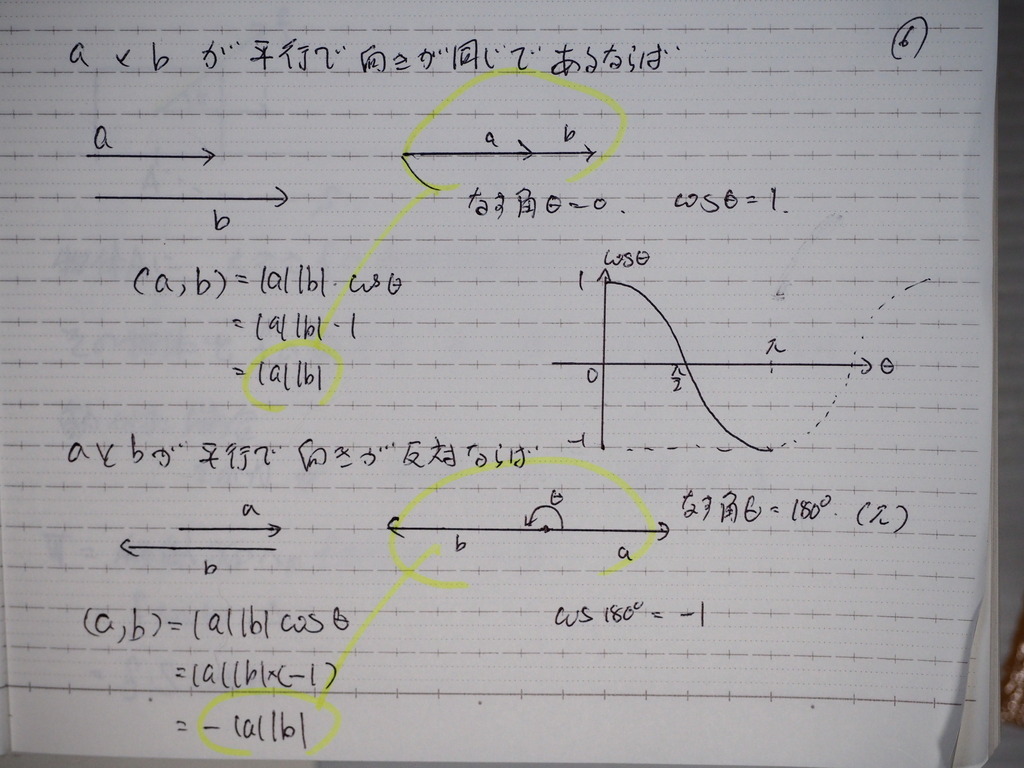 aとbが平行で向きが同じであるならば
6
a
b
a b
なす角θ=0. cosθ=1.
(a,b)=|a||b|・cosθ
=|a||b|・1
=|a||b|
cosθ
1
0
π/2
π
θ
-1
aとbが平行で向きが反対ならば
a
b
θ
b
a
なす角θ=180°. (π)
(a,b)=|a||b|cosθ
cos180°=-1
=|a||b|×(-1)
=-|a||b|